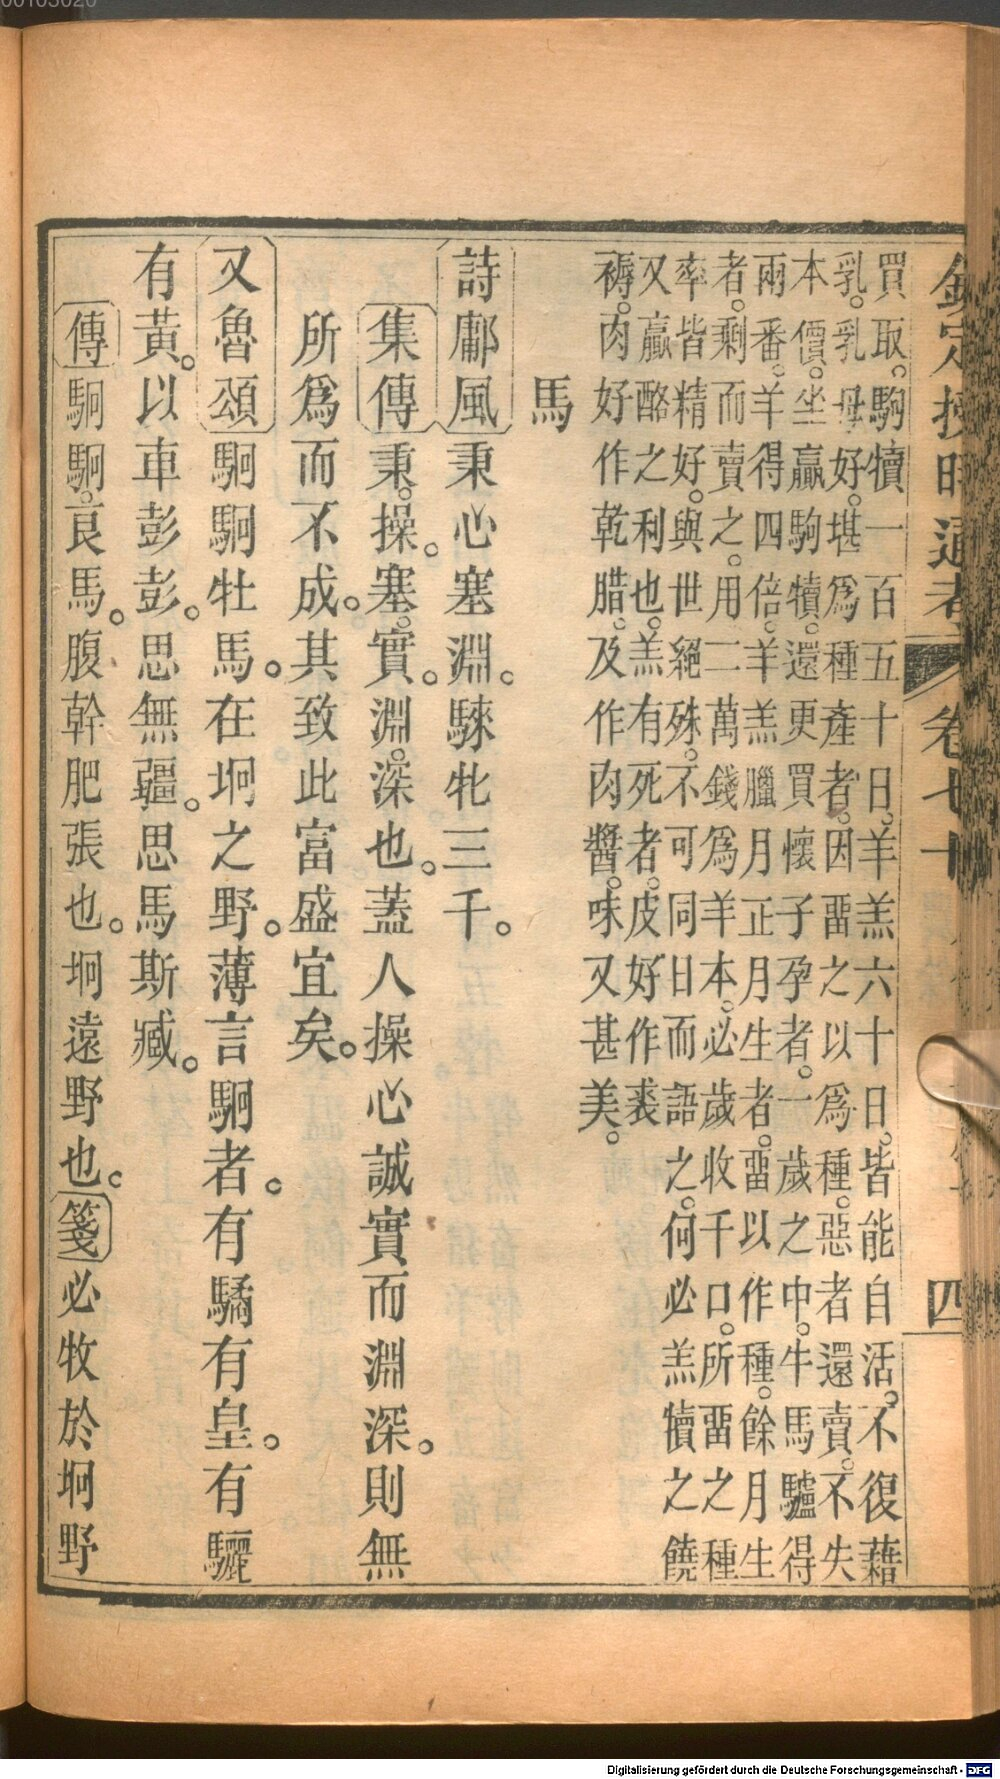 欽定授時通考 卷七十 四
買取。駒犢一百五十日。羊羔六十日。皆能自活。不復藉
乳。乳母好。堪爲種產者。因畱之以爲種。惡者還賣。不失
本價。坐贏駒犢。還更買懷子孕者。一歲之中。牛馬驢得
兩番。羊得四倍。羊羔臘月正月生者。畱以作種。餘月生
者。剩而賣之。用二萬錢爲羊本。必歲收千口。所畱之種
率皆精好。與世絕殊。不可同日而語之。何必羔犢之饒
又贏酪之利也。羔有死者。皮好作裘
褥。肉好作乾腊。及作肉醬。味又甚美。
馬
詩鄘風秉心塞淵。騋牝三千。
集傳秉。操。塞。實。淵。深也。蓋人操心誠實而淵深。則無
所爲而不成。其致此富盛宜矣。
又魯頌駉駉牡馬。在坰之野。薄言駉者。有驈有皇。有驪
有黃。以車彭彭。思無疆。思馬斯臧。
傳駉駉。良馬。腹幹肥張也。坰遠野也。箋必牧於坰野
00103020
Digitalisierung gefördert durch die Deutsche Forschungsgemeinschaft - DFG